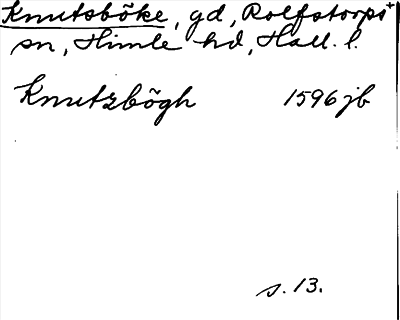 Knutsböke, gd, Rolfstorps+
sn, Himle hd, Hall. l.
Knutzbögh 1596 jb
s. 13.